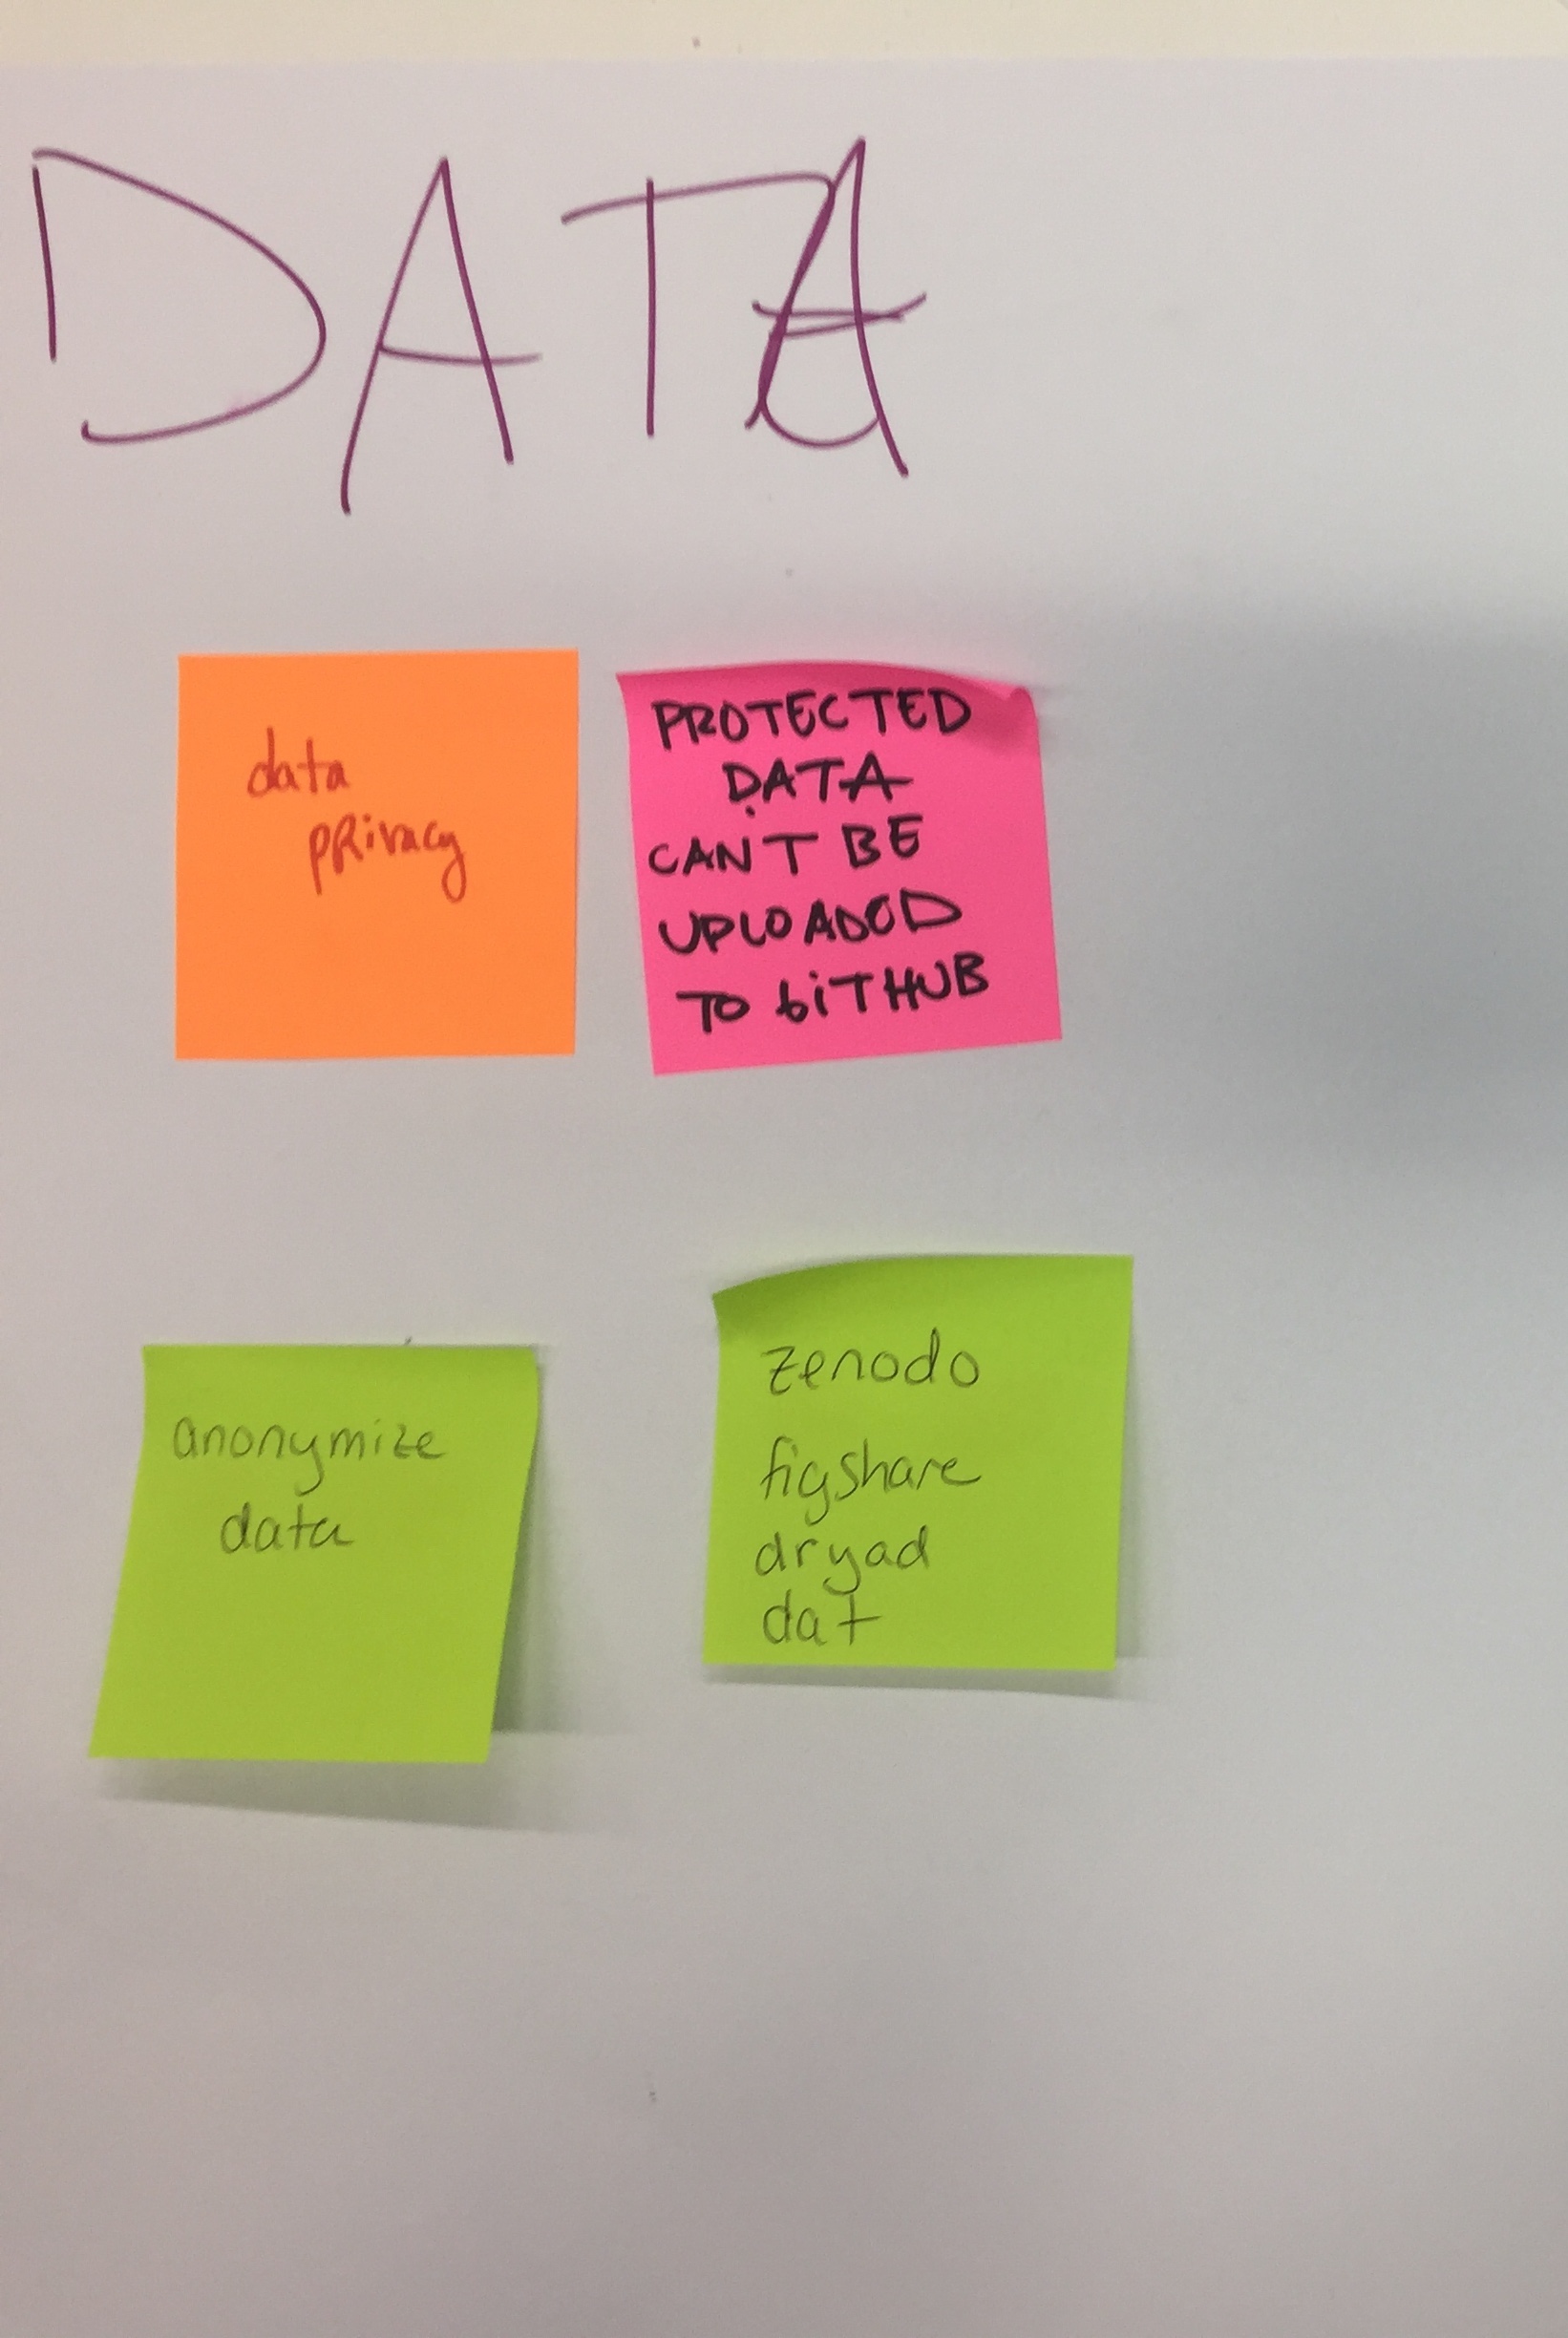 DATA
data
privacy
PROTECTED
DATA
CAN'T BE
UPLOADED
TO GITHUB
anonymize
data
zenodo
figshare
dryad
dat